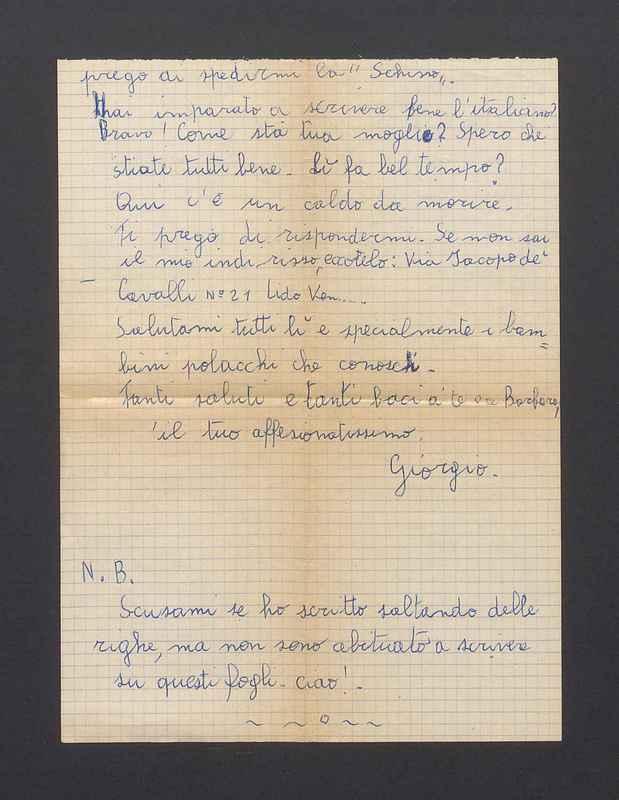 prego di spedirmi la "Schino".
Hai imparato a scrivere bene l'italiano?
Bravo! Come sta tua moglie? Spero che
stiate tutti bene. Lì fa bel tempo?
Qui c'è un caldo da morire.
Ti prego di rispondermi. Se non sai
il mio indirisso, eccotelo: Via Jacopo de'
Cavalli Nº 21 Lido Ven.....
Salutami tutti lì e specialmente i bam=
bini polacchi che conosci.
Tanti saluti e tanti baci a te e a Barbara,
il tuo affesionatissimo.
Giorgio.
N. B.
Scusami se ho scritto saltando delle
righe, ma non sono abituato a scrivere
su questi fogli. ciao!.